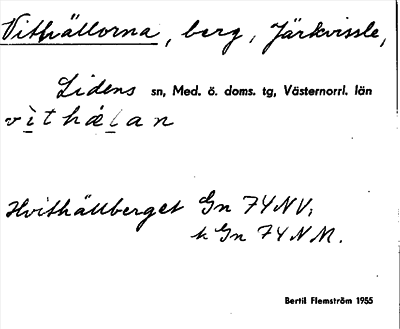 Vithällorna, berg, Järkvissle,
Lidens sn, Med. ö. doms. tg, Västernorrl. län
vìthǽlan
Hvithällberget Gn 74NV,
k Gn 74NM.
Bertil Flemström 1955